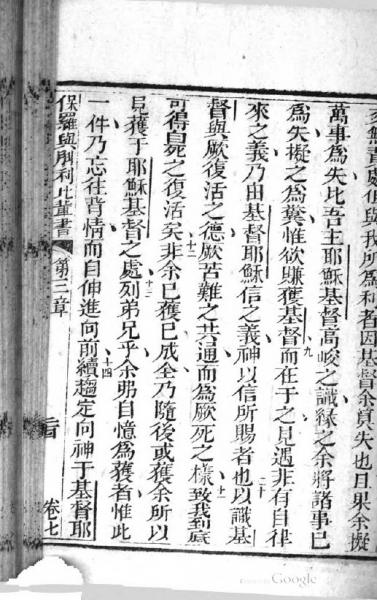 無責處但與我所爲利者因基督余算失也且果余擬
萬事爲失比吾主耶穌基督高峻之識緣之余將諸事已
爲失擬之爲糞惟欲賺獲基督九而在于之見遇非有自律
來之義乃由基督耶穌信之義神以信所賜者也十以識基
督與厥復活之德厥苦難之共通而爲厥死之樣十一致我到底
可得自死之復活矣十二非余已獲已成全乃隨後或獲余所以
見獲于耶穌基督之處十三列弟兄乎余弗自憶爲獲者惟此
一件乃忘往背情而自伸進向前十四續趨定向神于基督耶
保羅與腓利比輩書 第三章 卷七
Google